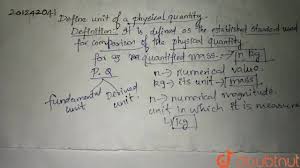 201242041
Define unit of a physical quantity.
Definition: It is defined as the established standard used
for comparison of the physical quantity
for ex quantified mass → n kg
P.Q n → numerical value
kg → its unit → mass
fundamental unit Derived unit
n → numerical magnitude
unit in which it is measure
↳ kg
doubtnut